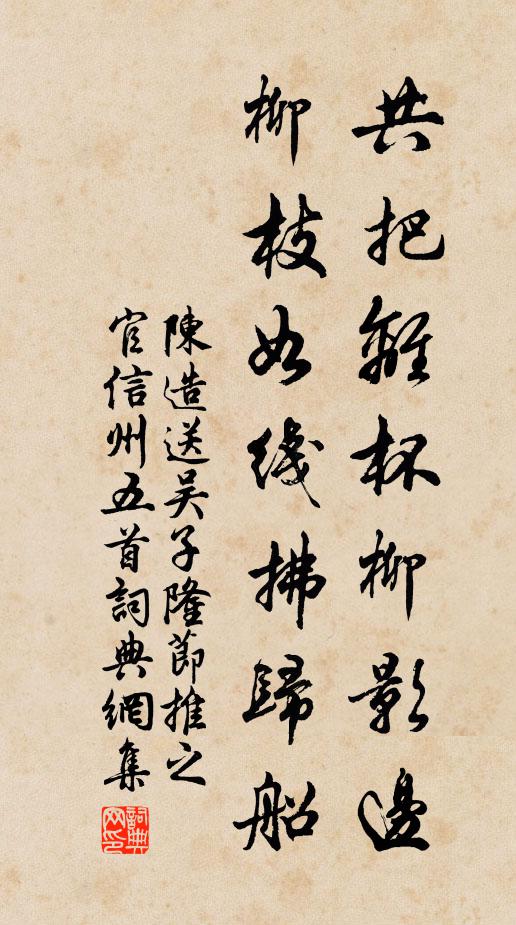 共把離杯柳影邊
柳枝如綫拂歸船
陳造送吴子隆節推之
官信州五首詞典網集
詞典网印